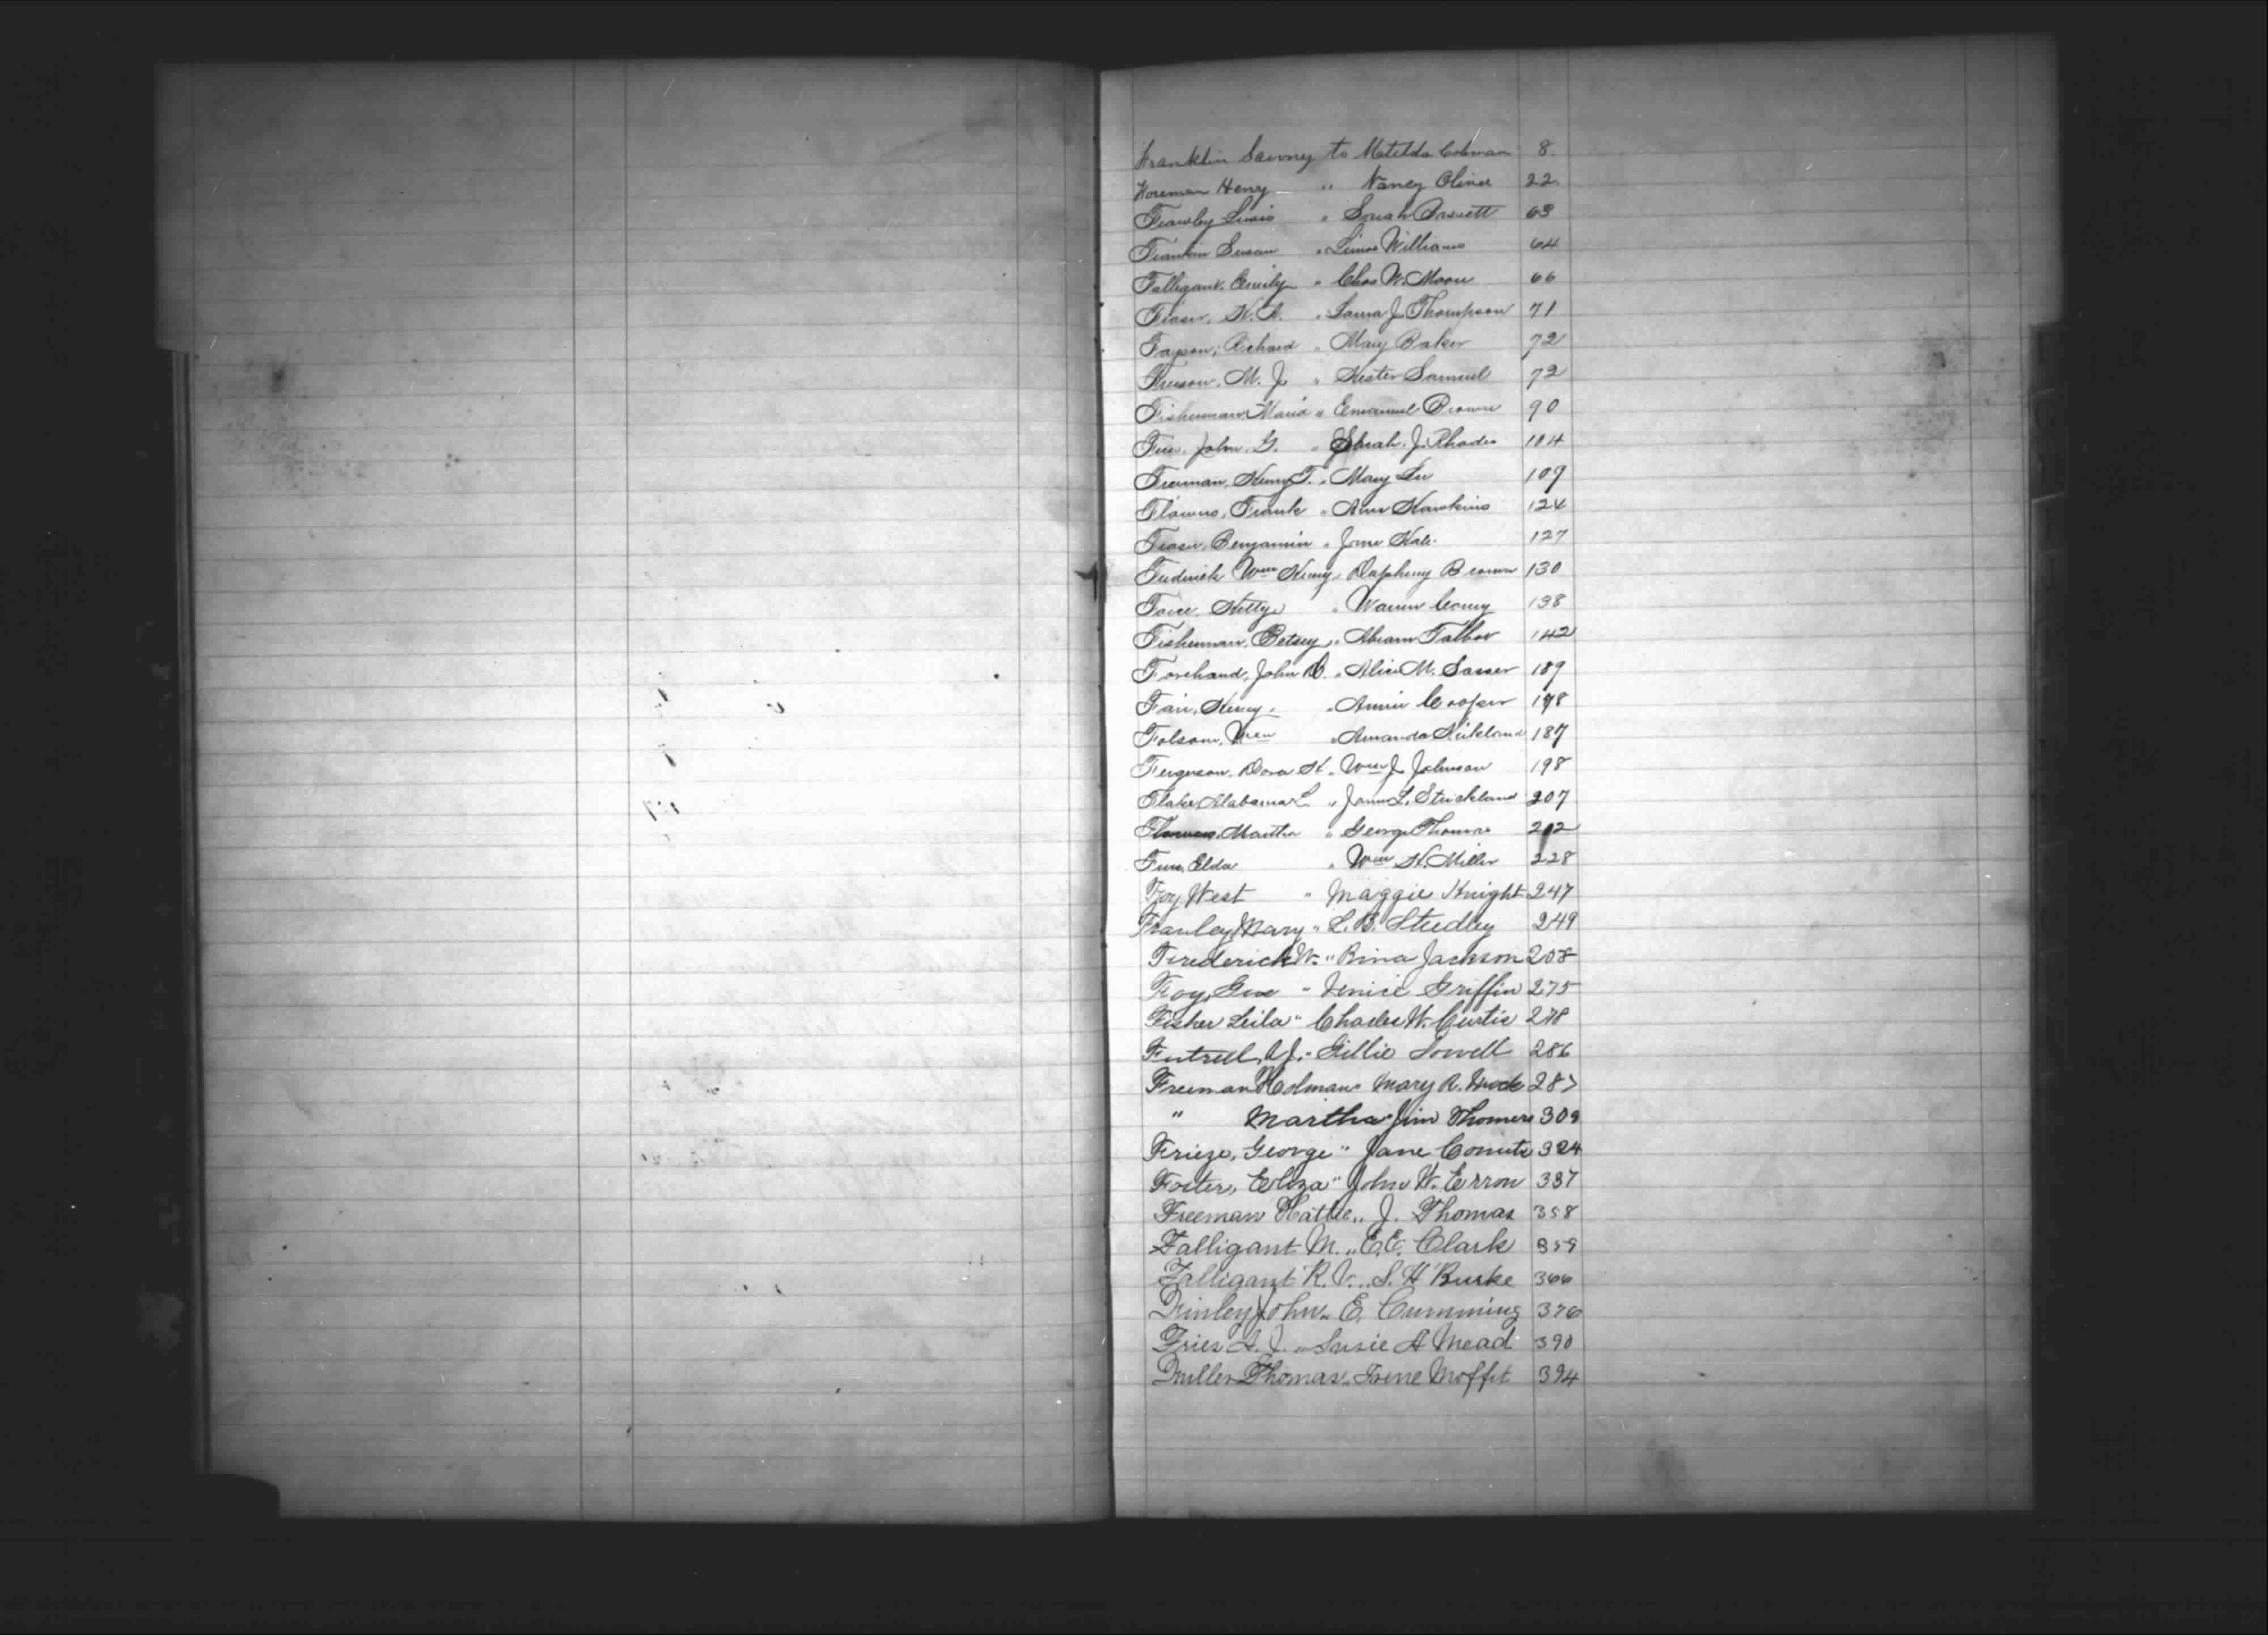 Franklin Sawny to Matilda Colman 8
Foreman Heny " Nancy Oliver 22
Frawley Lewis " Sarah Bassett 63
Franklin Susan " Limos Williams 64
Falligant. Emily " Chas W. Moore 66
Fraser, " Laura J. Thompson 71
Fayson, Richard " Mary Baker 72
M. J. " Hester Samuel 72
Fisherman, Maria " Emanuel Brown 90
John. G. " Sarah. J. Rhodes 104
Freeman, Henry T. " Mary Lee 109
Flowers, Frank " Ann Hawkins 124
Fraser, Benjamin " Jane Hall. 127
Frederick Wm Henry " Daphney Brown 130
Hettye " Warren 138
Fisherman, Betsey " Abram Talbot 142
Forehand, John B. " Alice M. Sasser 189
Fair, Henry. " Annie Cooper 198
Folsom, Wm " Amanda Kirkland 187
Ferguson. Dora H. " Wm J. Johnson 198
Flake, Alabama L " James L. Strickland 207
Flowers, Martha " George Thomas 212
Elda " Wm H. Miller 228
Foy, West " Maggie Knight 247
Franley, Mary " L. B. Studley 249
Firederick W. " Rina Jackson 208
Foy, " Venice Griffin 275
Fisher Leila " Charles W. Curtis 278
Futrell, A J. " Lillie Sowell 286
Freeman Holman " Mary R. 287
" Martha " Jim Thomers 309
Frieze, George " Jane 324
Foster, Eliza " John W. Erron 337
Freeman Hattie " J. Thomas 358
Falligant M. " E. E. Clark 359
Falligant R. V. " S. H Burke 366
Finley John " E. Cumming 376
Fries A. J. " Susie A Mead 390
Fuller Thomas " Irene Moffit 394